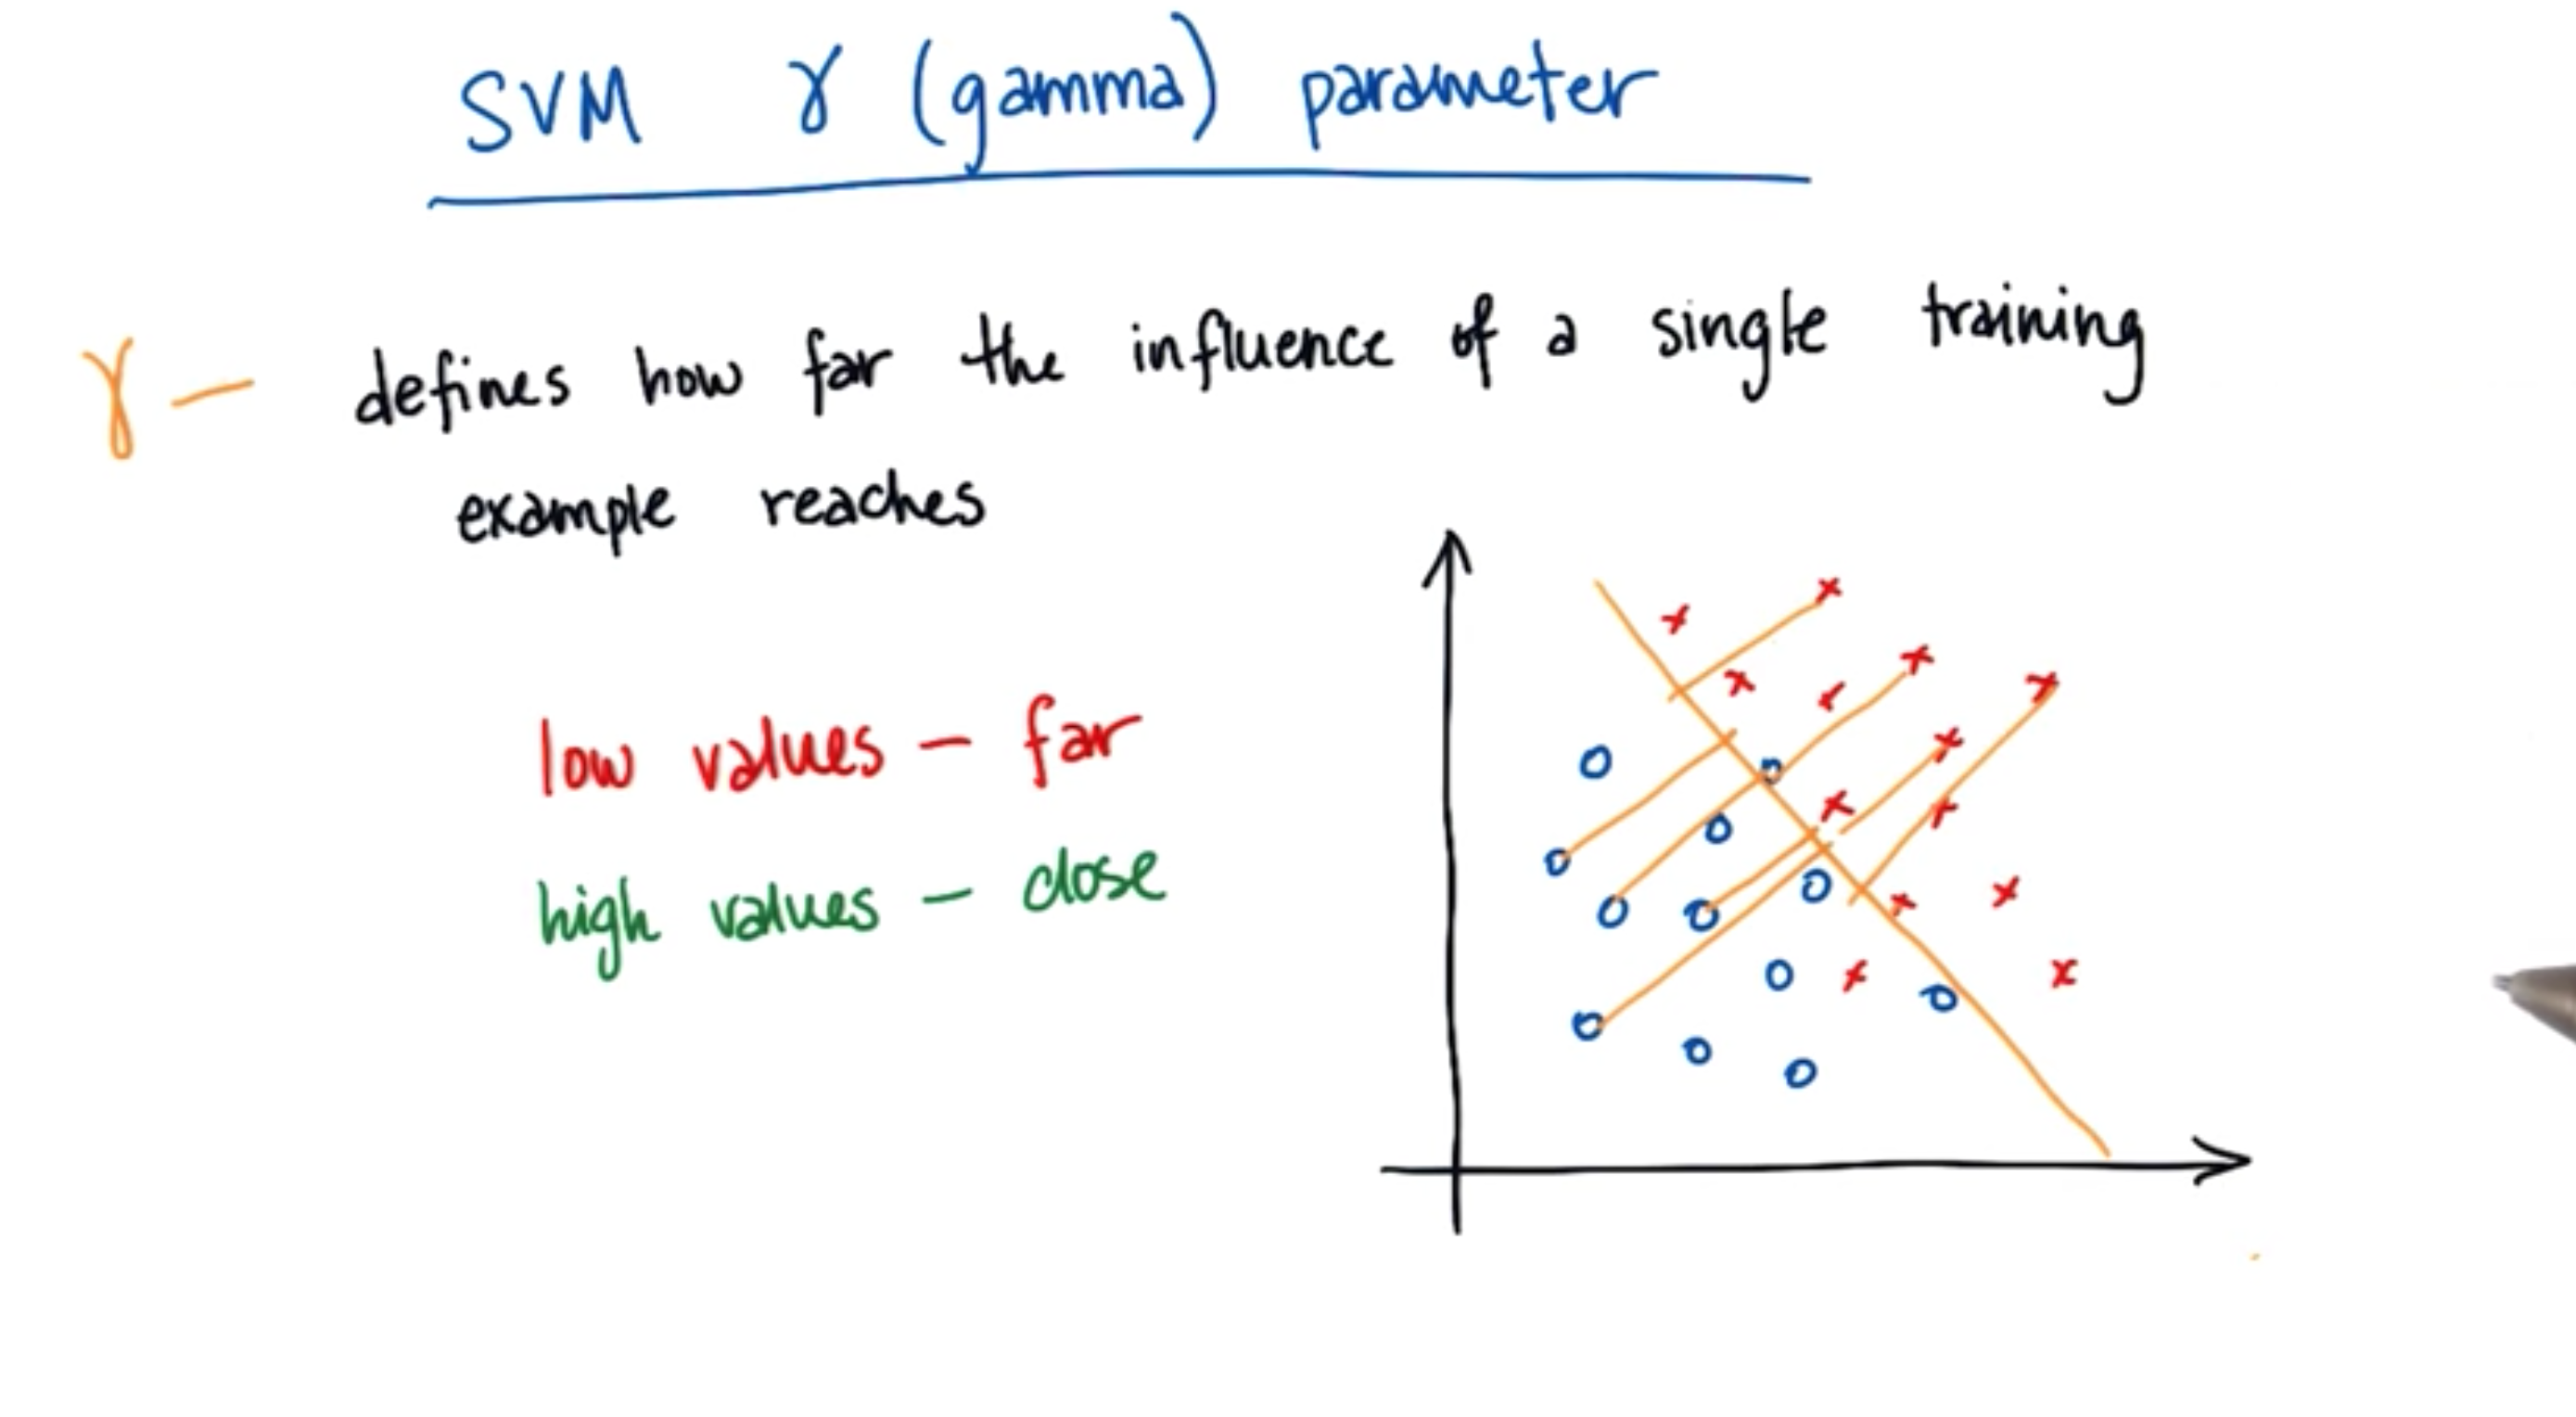 SVM γ (gamma) parameter
γ — defines how far the influence of a single training
example reaches
low values — far
high values — close